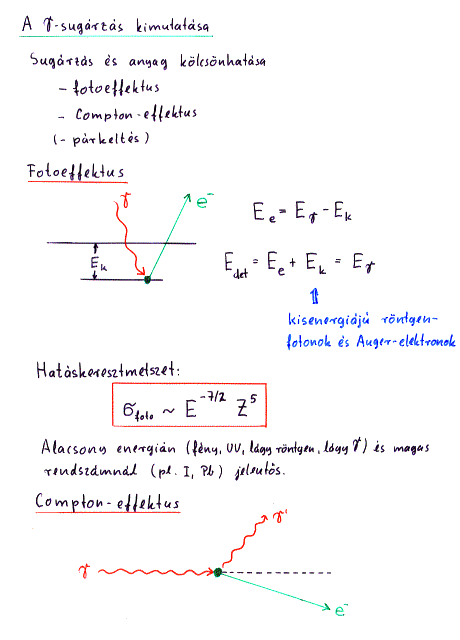 A γ-sugárzás kimutatása
Sugárzás és anyag kölcsönhatása
- fotoeffektus
- Compton-effektus
(- párkeltés)
Fotoeffektus
γ
e⁻
E_k
E_e = E_γ - E_k
E_det = E_e + E_k = E_γ
kisenergiájú röntgen-
fotonok és Auger-elektronok
Hatáskeresztmetszet:
σ_foto ~ E^-7/2 Z^5
Alacsony energián (fény, UV, lágy röntgen, lágy γ) és magas
rendszámnál (pl. I, Pb) jelentős.
Compton-effektus
γ
γ'
e⁻